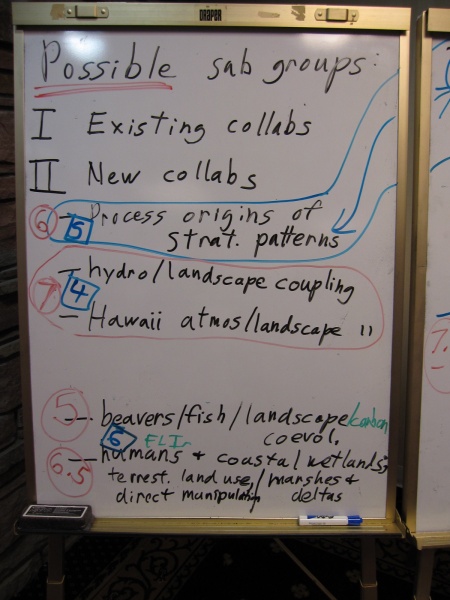 DRAPER
Possible sub groups:
I Existing collabs
II New collabs
6 5 - Process origins of
strat. patterns
7 4 - hydro/landscape coupling
- Hawaii atmos/landscape "
5 -- beavers/fish/landscape/carbon
coevol.
6
6.5 -- humans + coastal wetlands,
terrest. land use/marshes +
direct manipulation deltas
7.